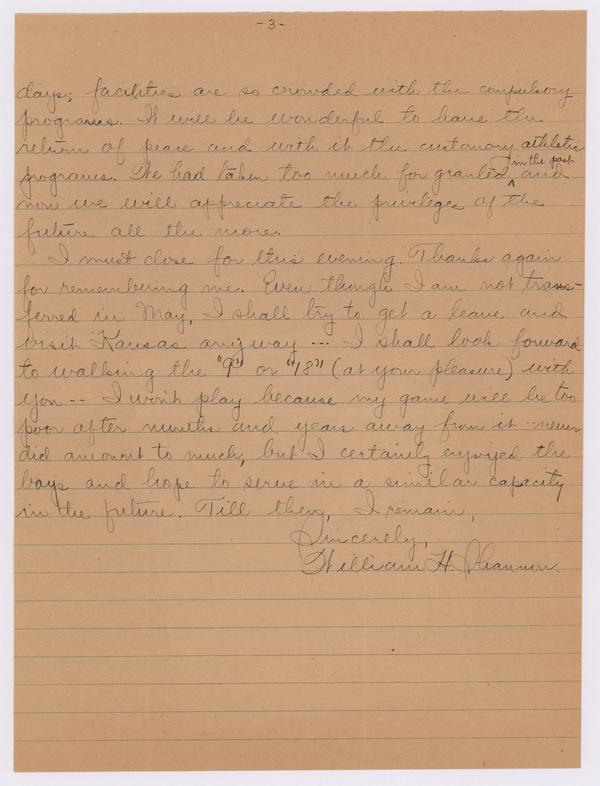 -3-
days; facilities are so crowded with the compulsory
programs. It will be wonderful to have the
return of peace and with it the customary athletic
programs. We had taken too much for granted in the past and
now we will appreciate the privileges of the
future all the more.
I must close for this evening. Thanks again
for remembering me. Even though I am not trans-
ferred in May, I shall try to get a leave and
visit Kansas anyway --- I shall look forward
to walking the "9" or "18" (at your pleasure) with
you -- I won't play because my game will be too
poor after months and years away from it - never
did amount to much, but I certainly enjoyed the
boys and hope to serve in a similar capacity
in the future. Till then, I remain,
Sincerely,
William H. Shannon.